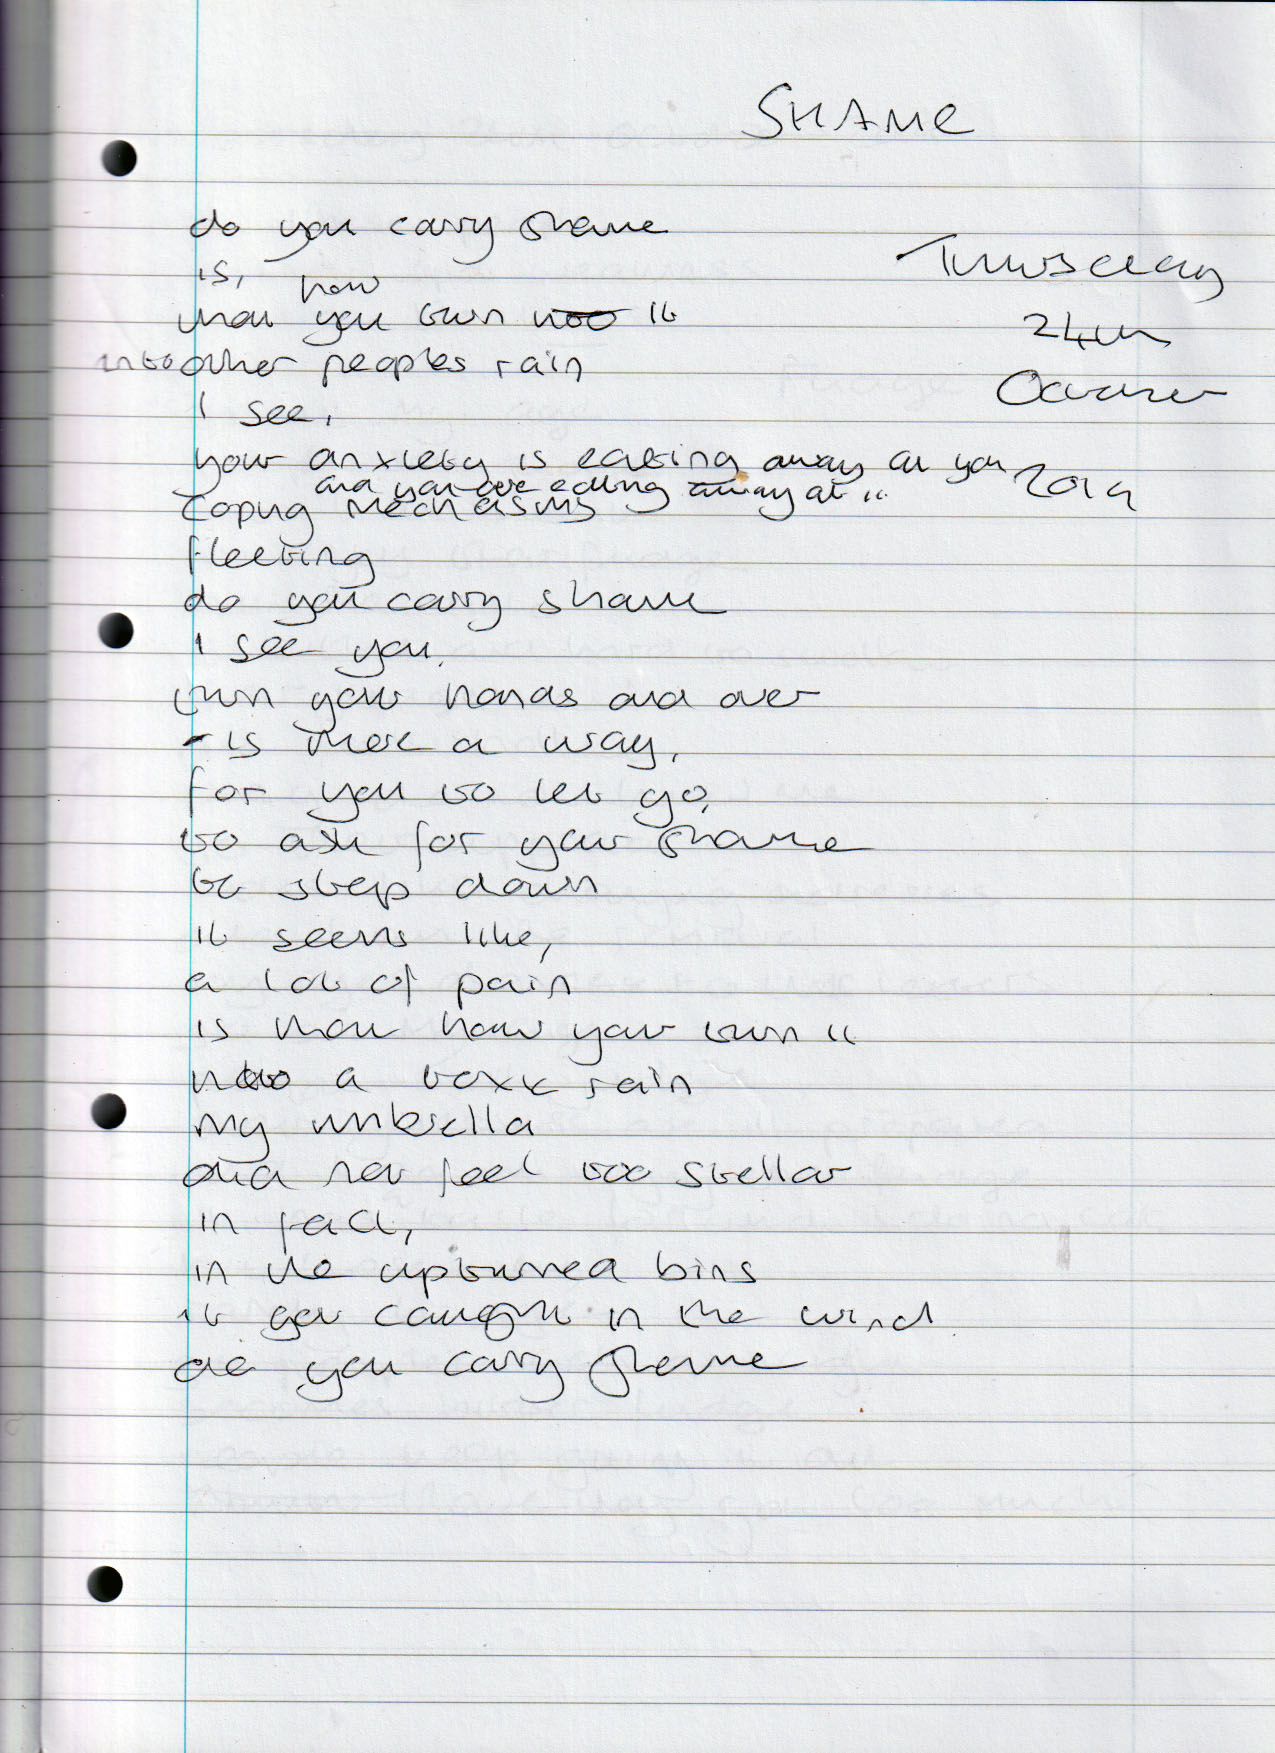 SHAME
do you carry shame
Thursday
is, how
that you turn into it
24th
into other peoples rain
October
I see,
your anxiety is eating away at you
2019
and you are eating away at it
Coping mechanisms
fleeting
do you carry shame
I see you,
turn your hands and over
- is there a way,
for you to let go,
to ask for your shame
to step down
it seems like,
a lot of pain
is that how you turn it
into a toxic rain
my umbrella
did not feel too stellar
in fact,
in the upturned bins
it got caught in the wind
do you carry shame